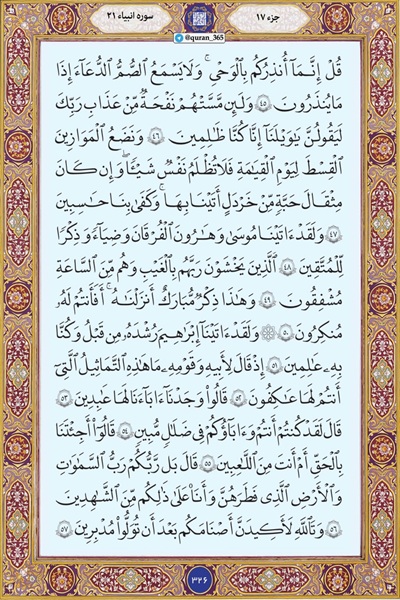 جزء ۱۷
@quran_365
سوره انبیاء ۲۱
قُلْ إِنَّمَآ أُنذِرُكُم بِٱلْوَحْىِ ۚ وَلَا يَسْمَعُ ٱلصُّمُّ ٱلدُّعَآءَ إِذَا
مَا يُنذَرُونَ ۝٤٥ وَلَئِن مَّسَّتْهُمْ نَفْحَةٌ مِّنْ عَذَابِ رَبِّكَ
لَيَقُولُنَّ يَٰوَيْلَنَآ إِنَّا كُنَّا ظَٰلِمِينَ ۝٤٦ وَنَضَعُ ٱلْمَوَٰزِينَ
ٱلْقِسْطَ لِيَوْمِ ٱلْقِيَٰمَةِ فَلَا تُظْلَمُ نَفْسٌ شَيْـًٔا ۖ وَإِن كَانَ
مِثْقَالَ حَبَّةٍ مِّنْ خَرْدَلٍ أَتَيْنَا بِهَا ۗ وَكَفَىٰ بِنَا حَٰسِبِينَ
۝٤٧ وَلَقَدْ ءَاتَيْنَا مُوسَىٰ وَهَٰرُونَ ٱلْفُرْقَانَ وَضِيَآءً وَذِكْرًا
لِّلْمُتَّقِينَ ۝٤٨ ٱلَّذِينَ يَخْشَوْنَ رَبَّهُم بِٱلْغَيْبِ وَهُم مِّنَ ٱلسَّاعَةِ
مُشْفِقُونَ ۝٤٩ وَهَٰذَا ذِكْرٌ مُّبَارَكٌ أَنزَلْنَٰهُ ۚ أَفَأَنتُمْ لَهُۥ
مُنكِرُونَ ۝٥٠ ۞ وَلَقَدْ ءَاتَيْنَآ إِبْرَٰهِيمَ رُشْدَهُۥ مِن قَبْلُ وَكُنَّا
بِهِۦ عَٰلِمِينَ ۝٥١ إِذْ قَالَ لِأَبِيهِ وَقَوْمِهِۦ مَا هَٰذِهِ ٱلتَّمَاثِيلُ ٱلَّتِىٓ
أَنتُمْ لَهَا عَٰكِفُونَ ۝٥٢ قَالُوا۟ وَجَدْنَآ ءَابَآءَنَا لَهَا عَٰبِدِينَ ۝٥٣
قَالَ لَقَدْ كُنتُمْ أَنتُمْ وَءَابَآؤُكُمْ فِى ضَلَٰلٍ مُّبِينٍ ۝٥٤ قَالُوٓا۟ أَجِئْتَنَا
بِٱلْحَقِّ أَمْ أَنتَ مِنَ ٱللَّٰعِبِينَ ۝٥٥ قَالَ بَل رَّبُّكُمْ رَبُّ ٱلسَّمَٰوَٰتِ
وَٱلْأَرْضِ ٱلَّذِى فَطَرَهُنَّ وَأَنَا۠ عَلَىٰ ذَٰلِكُم مِّنَ ٱلشَّٰهِدِينَ
۝٥٦ وَتَٱللَّهِ لَأَكِيدَنَّ أَصْنَٰمَكُم بَعْدَ أَن تُوَلُّوا۟ مُدْبِرِينَ ۝٥٧
۳۲۶